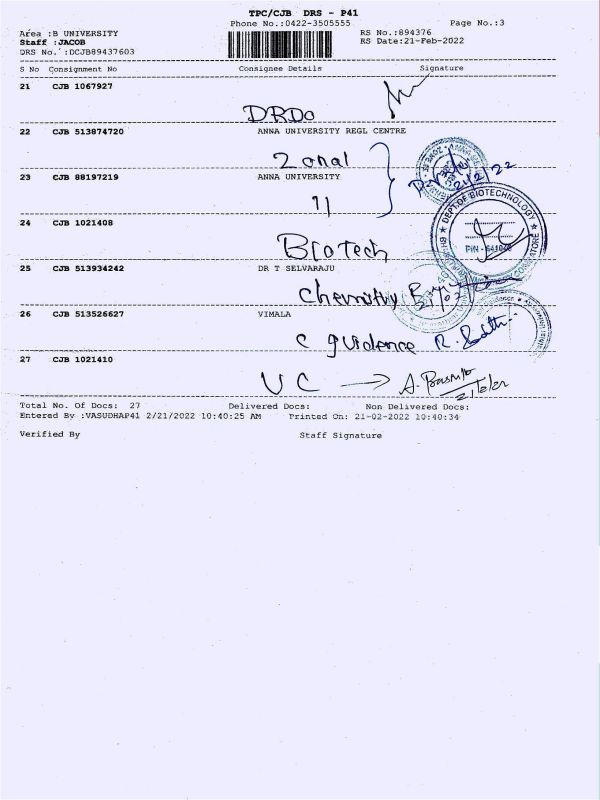 TPC/CJB DRS - P41
Phone No.:0422-3505555 Page No.:3
Area :B UNIVERSITY RS No.:894376
Staff :JACOB RS Date:21-Feb-2022
DRS No. :DCJB89437603
S No Consignment No Consignee Details Signature
21 CJB 1067927
DRDO
22 CJB 513874720 ANNA UNIVERSITY REGL CENTRE
Zonal
23 CJB 88197219 ANNA UNIVERSITY
11
21/2/22
DEPT OF BIOTECHNOLOGY
24 CJB 1021408
PIN - 641046
Biotech
25 CJB 513934242 DR T SELVARAJU
Chemistry
26 CJB 513526627 VIMALA
C guidence R.
27 CJB 1021410
UC → A.
Total No. Of Docs: 27 Delivered Docs: Non Delivered Docs:
Entered By :VASUDHAP41 2/21/2022 10:40:25 AM Printed On: 21-02-2022 10:40:34
Verified By Staff Signature